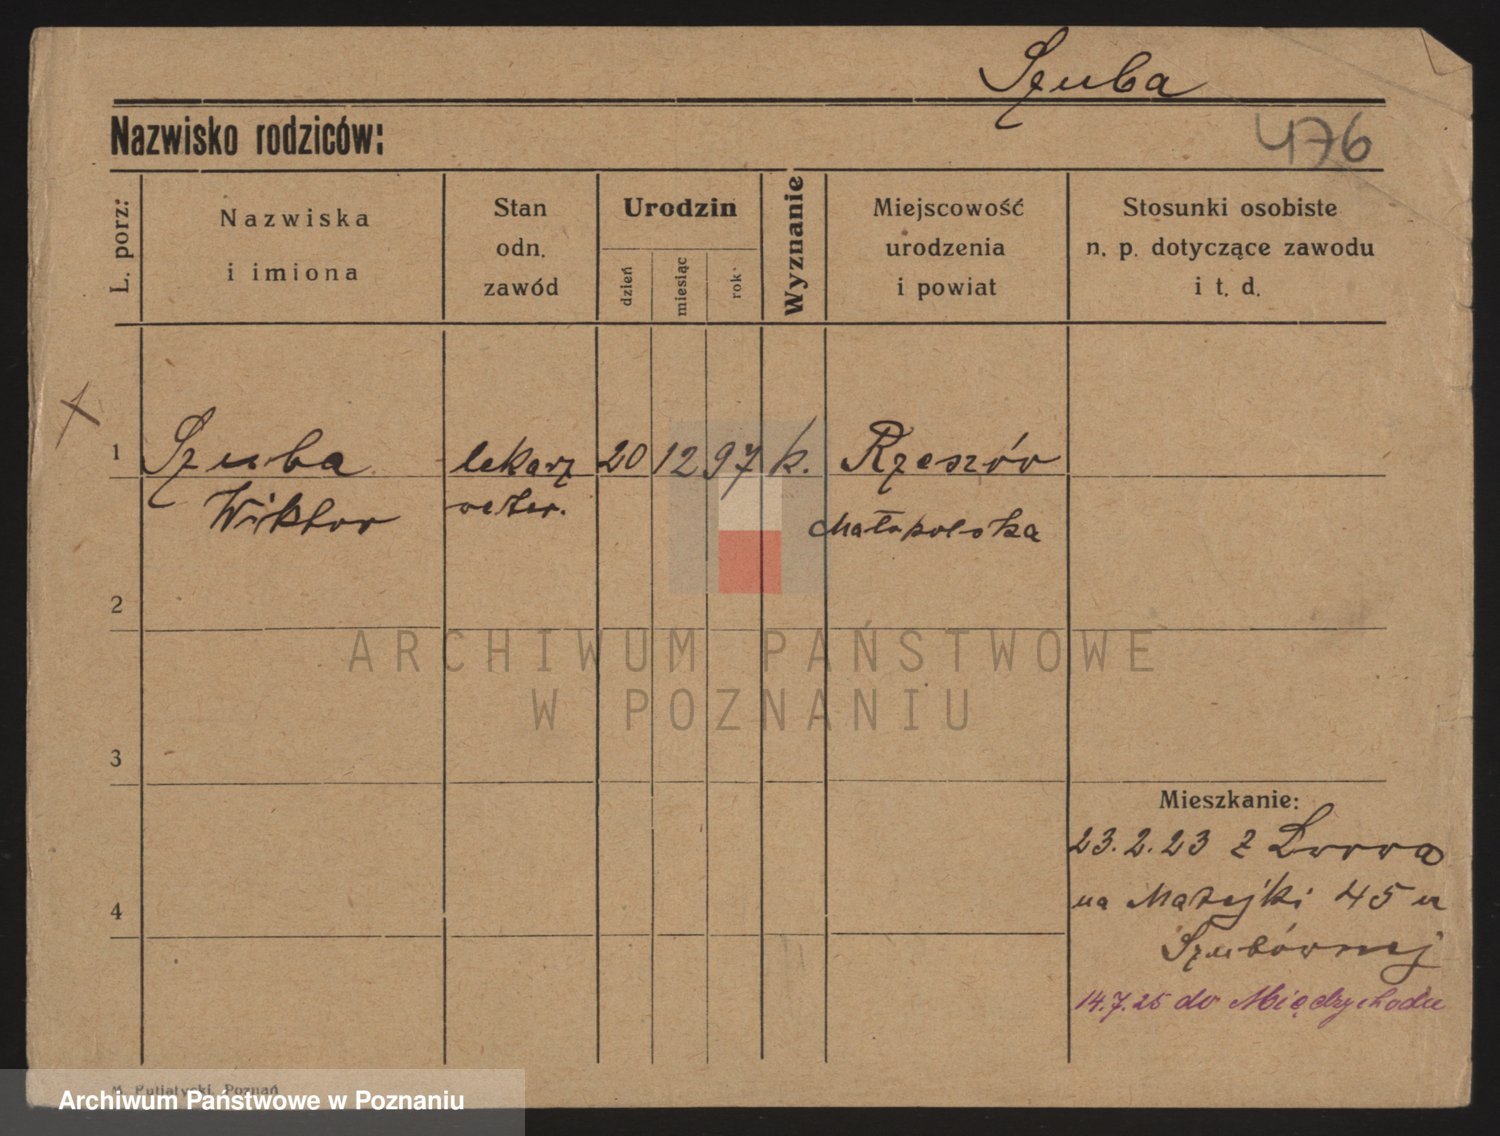 Szuba
Nazwisko rodziców:
476
L. porz:
Nazwiska
i imiona
Stan
odn.
zawód
Urodzin
dzień
miesiąc
rok
Wyznanie
Miejscowość
urodzenia
i powiat
Stosunki osobiste
n. p. dotyczące zawodu
i t. d.
1
Szuba
Wiktor
lekarz
weter.
20
12
97
k.
Rzeszów
Małopolska
2
ARCHIWUM PAŃSTWOWE
W POZNANIU
3
Mieszkanie:
23.2.23 z Lwowa
na Matejki 45 u
Szubównej
14.7.25 do Międzychodu
4
M. Putiatycki, Poznań
Archiwum Państwowe w Poznaniu